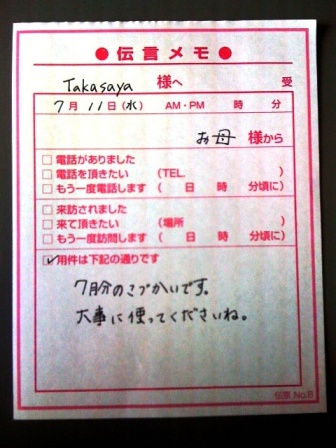 ●伝言メモ●
Takasaya 様へ 受
7月11日(水) AM・PM 時 分
お母 様から
□電話がありました
□電話を頂きたい (TEL. )
□もう一度電話します ( 日 時 分頃に)
□来訪されました
□来て頂きたい (場所 )
□もう一度訪問します ( 日 時 分頃に)
☑用件は下記の通りです
7月分のこづかいです。
大事に使ってくださいね。
伝票 No.8